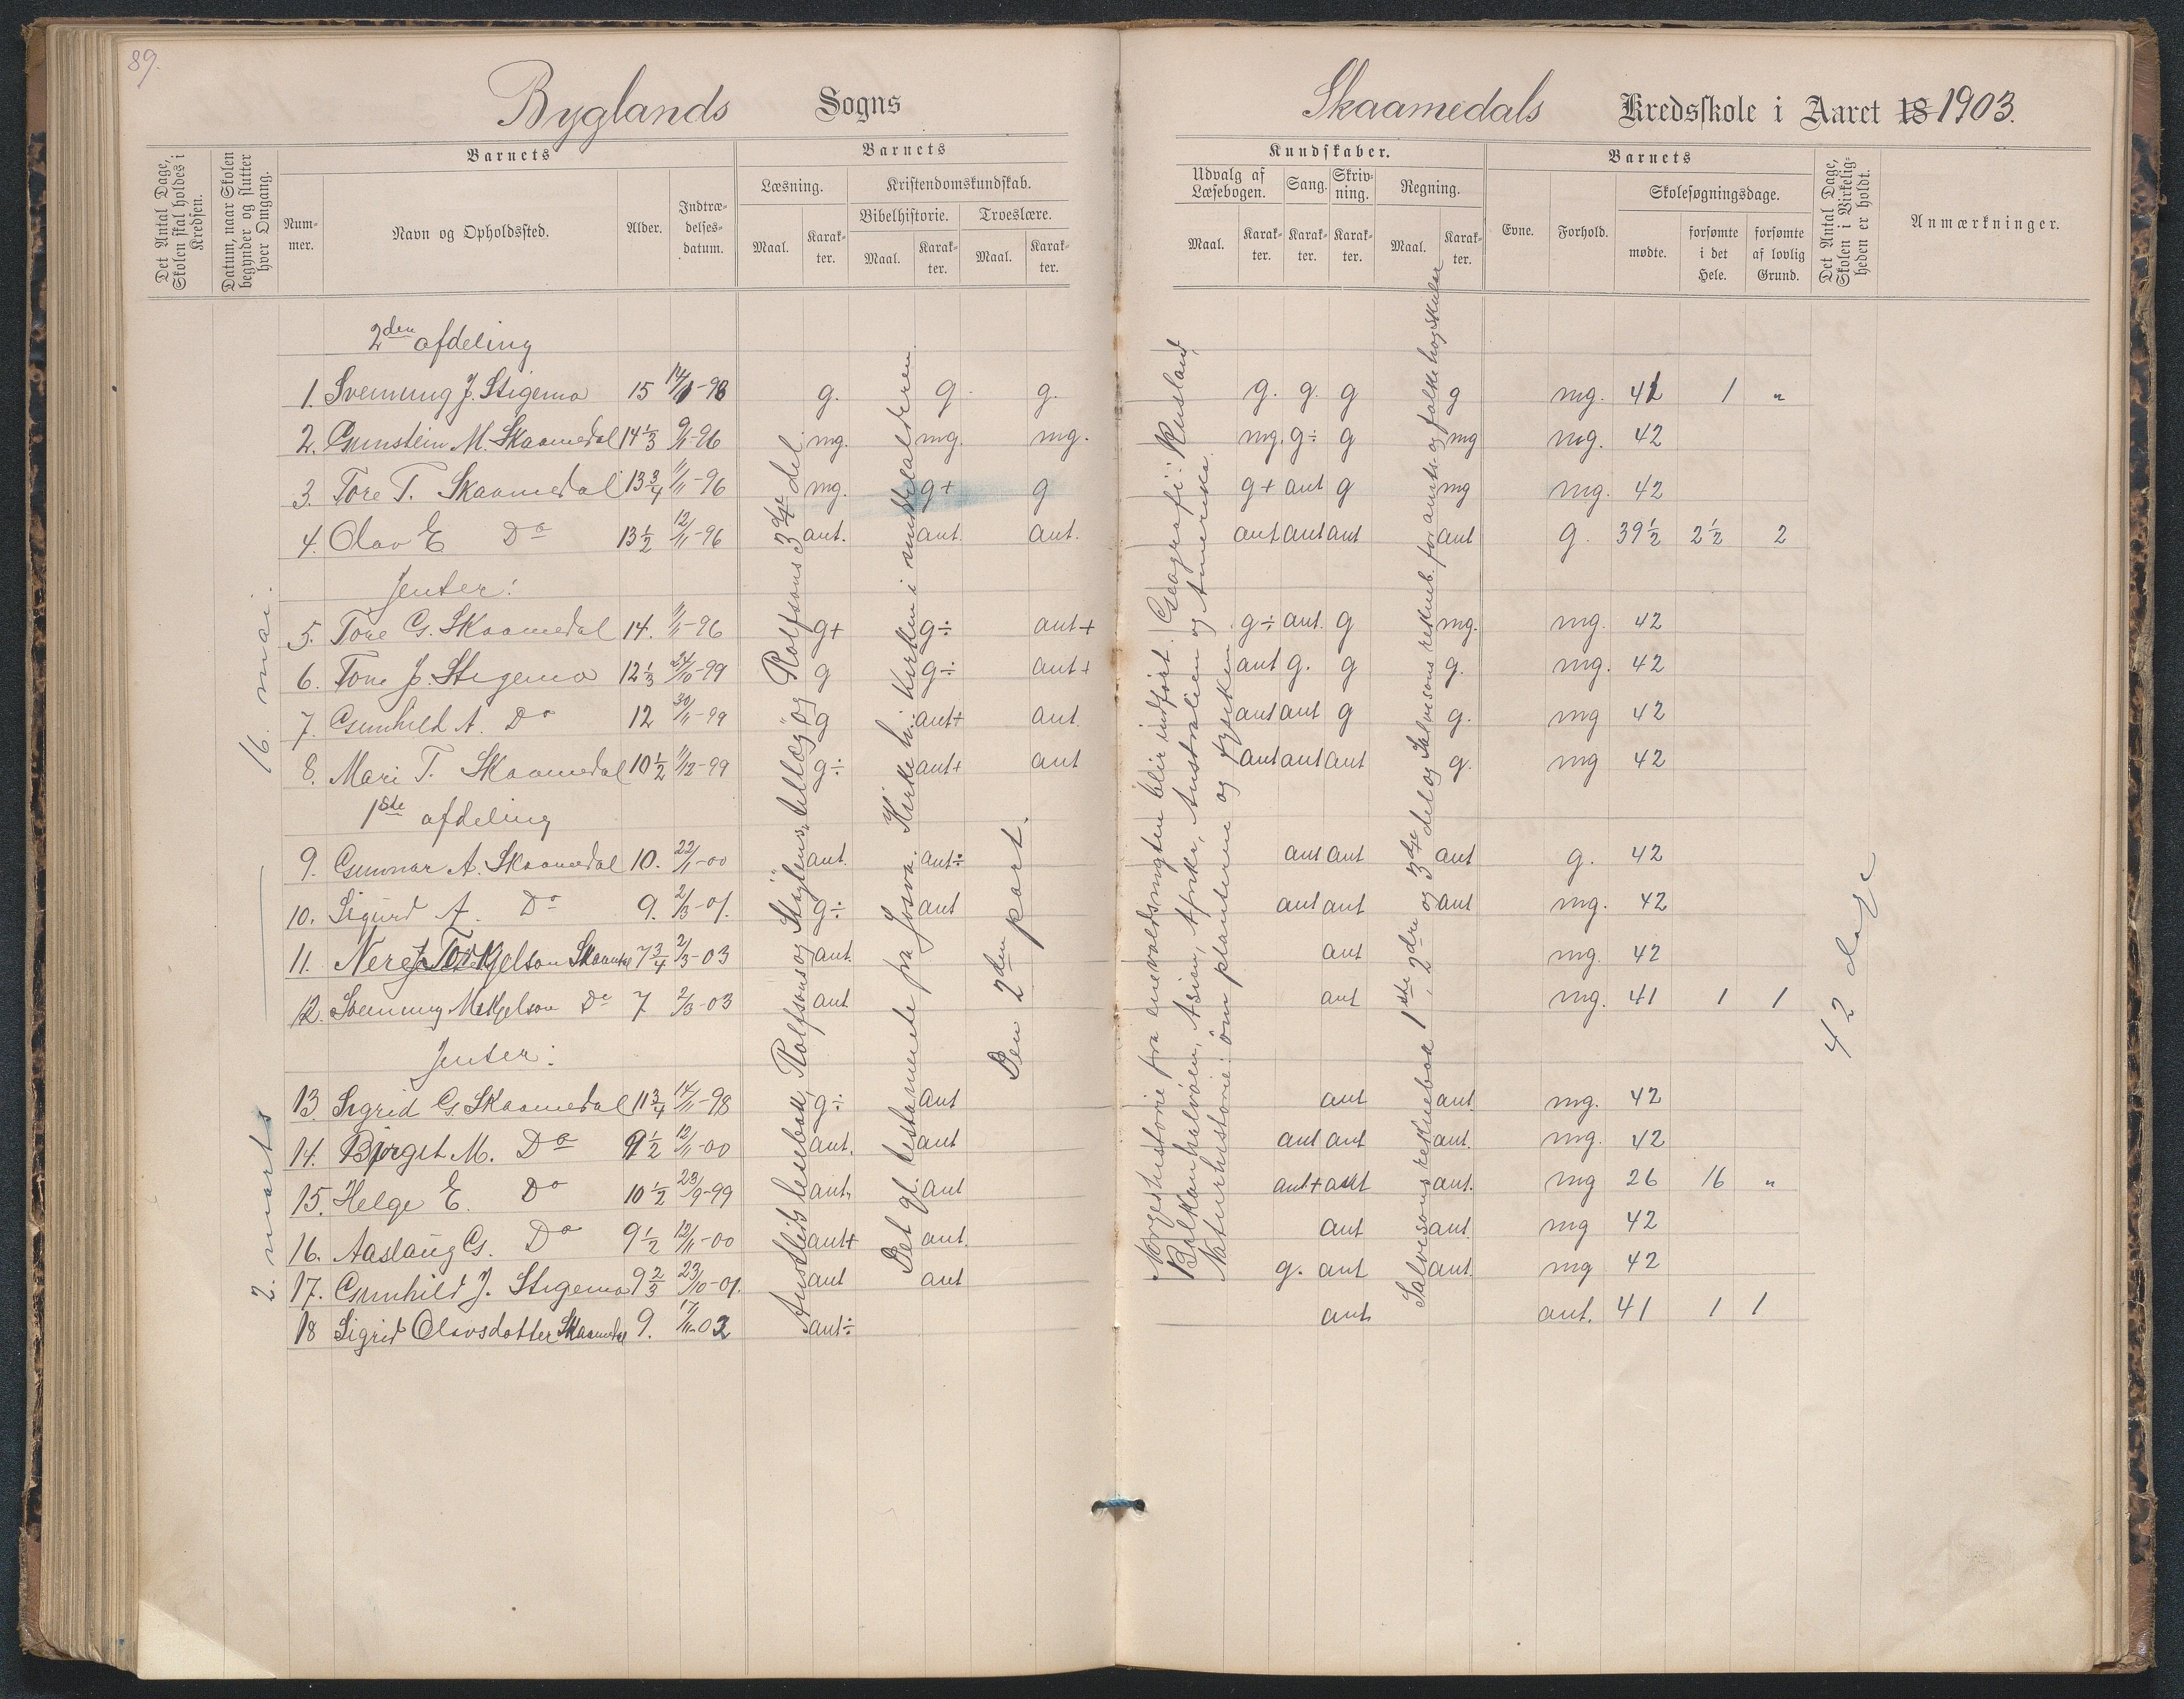 89.
Byglands Sogns
Skaamedals Kredsskole i Aaret 18 1903.
Det Antal Dage, Skolen skal holdes i Kredsen.
Datum, naar Skolen begynder og slutter hver Omgang.
Barnets
Nummer.
Navn og Opholdssted.
Alder.
Indtrædelsesdatum.
Barnets
Læsning.
Maal.
Karakter.
Kristendomskundskab.
Bibelhistorie.
Maal.
Karakter.
Troeslære.
Maal.
Karakter.
Kundskaber.
Udvalg af Læsebogen.
Maal.
Karakter.
Sang.
Karakter.
Skrivning.
Karakter.
Regning.
Maal.
Karakter.
Barnets
Evne.
Forhold.
Skolesøgningsdage.
mødte.
forsømte i det Hele.
forsømte af lovlig Grund.
Det Antal Dage, Skolen i Virkeligheden er holdt.
Anmærkninger.
2. marts
16. mai.
2den afdeling
1. Svennung J. Stigemo 15 14/11-98 g. g. g. g. g. g g mg. 41 1 "
2. Gunstein M. Skaamedal 14 1/3 9/11-96 mg. mg. mg. mg. g÷ g mg mg. 42
3. Tore T. Skaamedal 13 3/4 11/11-96 mg. g+ g g+ ant g mg mg. 42
4. Olav E Do 13 1/2 12/11-96 ant. ant. ant. ant ant ant ant g. 39 1/2 2 1/2 2
Jenter:
5. Tone G. Skaamedal 14. 11/11-96 g+ g÷ ant+ g÷ ant. g mg. mg. 42
6. Tone J. Stigemo 12 1/3 24/10-99 g g÷ ant+ ant g. g g. mg. 42
7. Gunhild A. Do 12 30/11-99 g ant+ ant ant ant g g. mg 42
8. Mari T. Skaamedal 10 1/2 11/12-99 g÷ ant+ ant ant ant ant g. mg 42
1ste afdeling
9. Gunnar A. Skaamedal 10. 22/11-00 ant. ant÷ ant ant ant g. 42
10. Sigurd A. Do 9. 2/3-01. g÷ ant ant ant ant mg. 42
11. Torkjelson Skaamdal 7 3/4 2/3-03 ant. ant mg. 42
12. Svennung Do 7 2/3-03 ant ant mg. 41 1 1
Jenter:
13. Sigrid G Skaamedal 11 3/4 14/11-98 g÷ ant ant ant mg. 42
14. Birgit M. Do 9 1/2 12/11-00 ant. ant ant ant ant. mg. 42
15. Helge E. Do 10 1/2 23/9-99 ant. ant ant+ ant ant. mg 26 16 "
16. Aaslaug G. Do 9 1/2 12/11-00 ant+ ant. ant ant mg 42
17. Gunhild J. Stigemo 9 2/3 23/10-01. ant ant g. ant ant. mg 42
18 Sigrid Olavsdotter Skaamdal 9. 17/11-02 ant÷ ant. ant. 41 1 1
Austlids lesebok, Rolfsons og Støylens "Tillæg" og Rolfsons 3dje del
Det gl. testamente fra Josva. Kirkeh.: Kirken i middelalderen.
Den 2den part.
Norgeshistorie fra enevoldsmagten blir indført. Geografi: Rusland,
Balkanhalvøen, Asien, Afrika, Australien og Amerika.
Naturhistorie: om planterne og fysiken
Salvesons reknebok 1ste, 2dre og 3dje del og Salvesons rekneb. for amts- og folkehøgskuler
42 dage